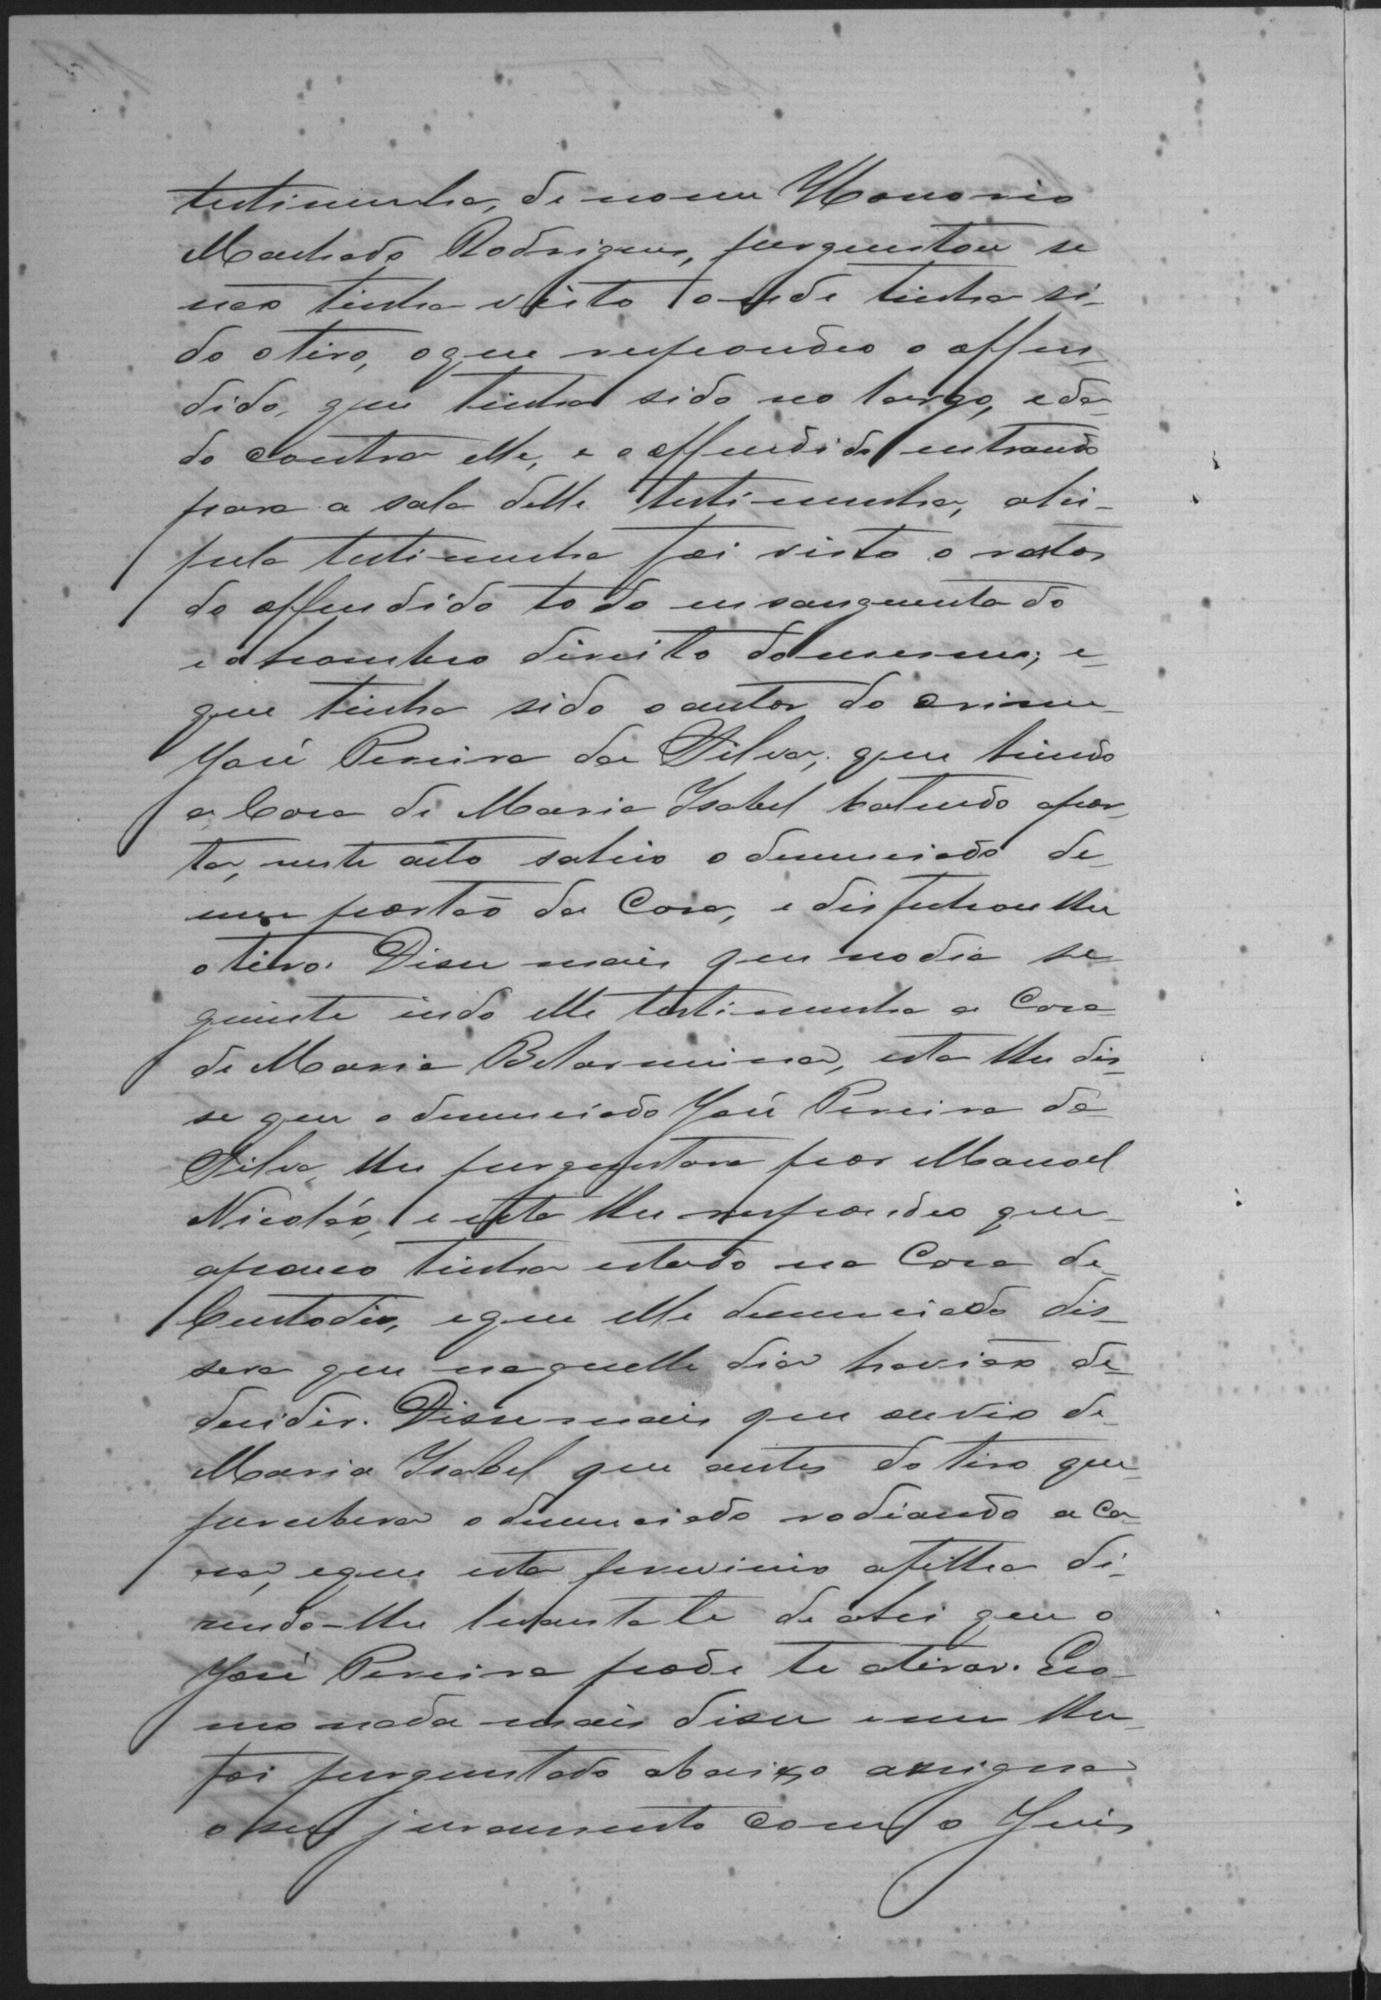 testimunha, de nome Honorio
Machado Rodrigues, purguntou se
não tinha visto onde tinha si-
do otiro, oque respondeo o offen-
dido, que tinha sido no largo, eda-
do contra elle, e o offendido entrando
para a sala delle testimunha, ahi
pela testimunha foi visto o rosto
do offendido todo ensanguentado
e ohombro direito domesmo; e
que tinha sido oautor do crime
José Pereira da Silva, que hindo
a Casa de Maria Isabel batendo apor-
ta, neste acto sahio o denunciado de
um portão da Casa, e disparou lhe
otiro. Disse mais que nodia se
guinte indo elle testimunha a Casa
de Maria Belarmina, esta lhe dis-
se que o denunciado José Pereira da
Silva, lhe purguntara por Manoel
Nicoláo, e esta lhe respondeo que
apouco tinha estado na Casa de
Custodio, eque elle denunciado dis-
sera que naquelle dia havião de
decidir. Disse mais que ouvio de
Maria Isabel que antes do tiro que
percebera odenunciado rodiando a ca-
sa, eque esta previnio afilha di-
zendo-lhe levanta te de ahi que o
José Pereira pode te atirar. Eco-
mo nada mais disse e nem lhe
foi purguntado abaixo assigna
o seu juramento com o Juis